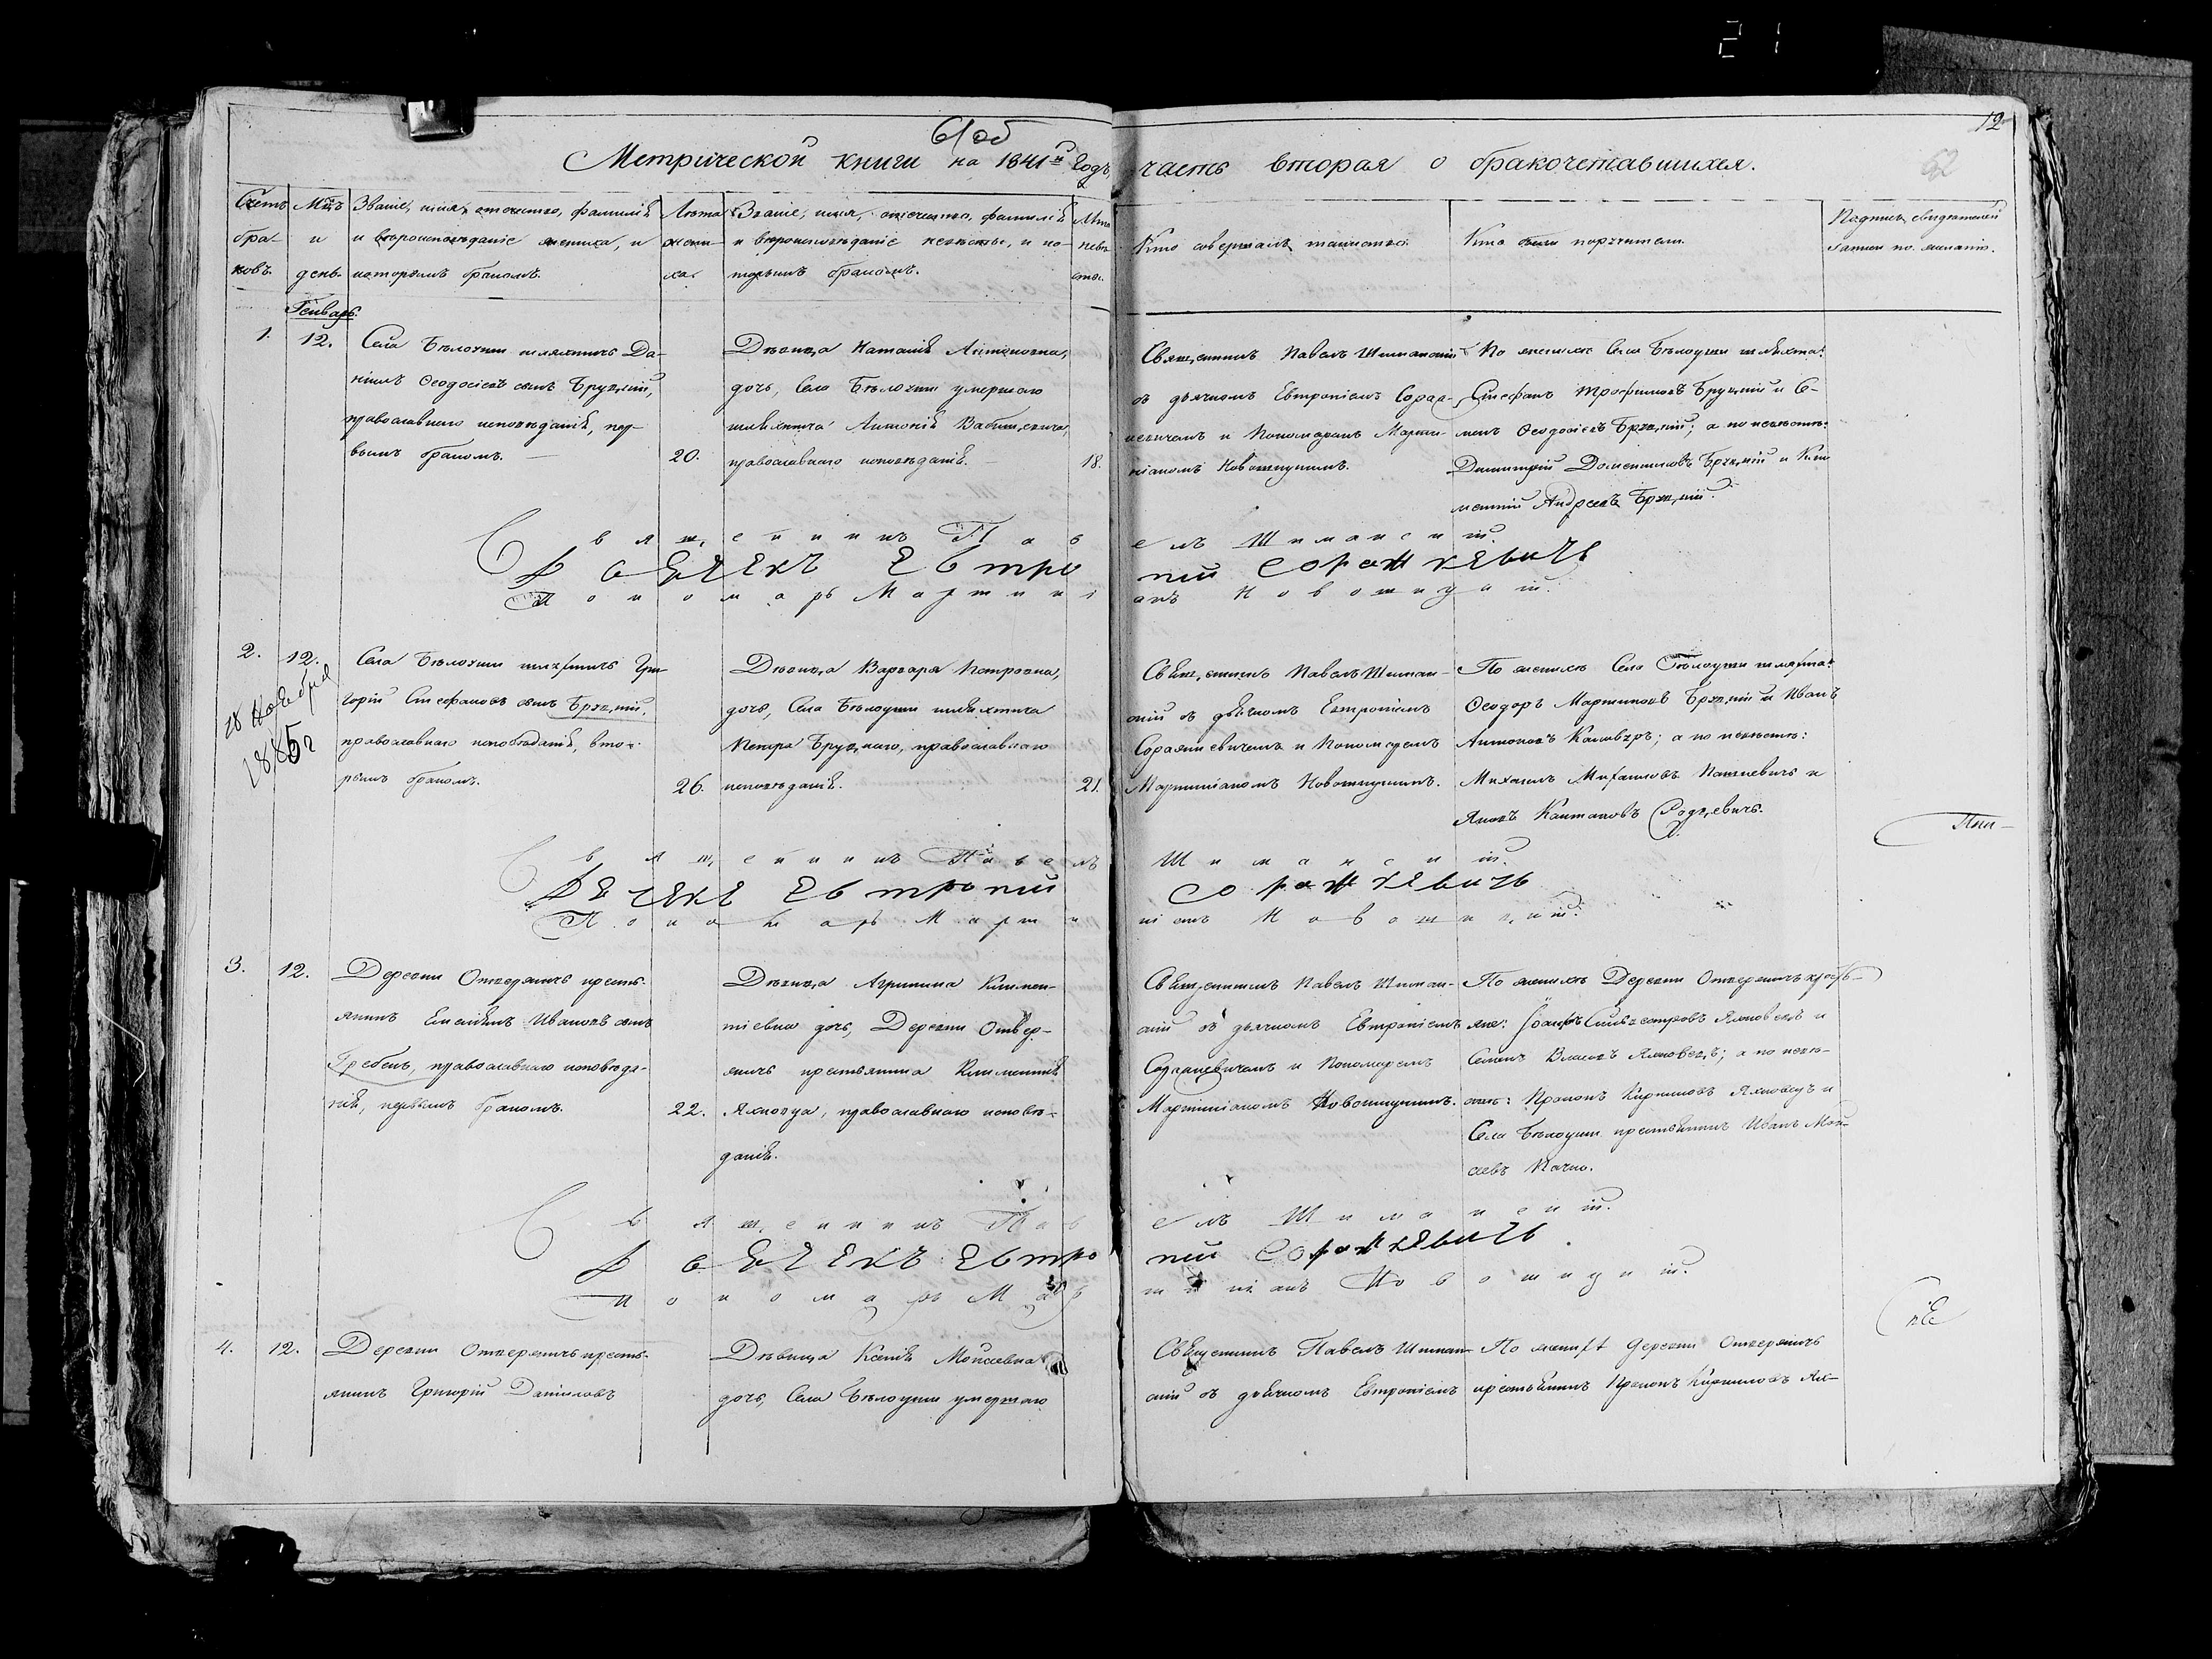 21
12
62
61 об
Метрической книги на 1841й годъ, часть вторая о бракочетавшихся.
Счетъ браковъ.
Мцъ и день.
Званіе, имя, отечество, фамилія
и вѣроисповѣданіе жениха, и
которымъ бракомъ.
Лѣта
жени-
ха.
Званіе, имя, отечество, фамилія
и вѣроисповѣданіе невѣсты, и ко-
торымъ бракомъ.
Лѣта
невѣ-
сты.
Кто совершалъ таинство.
Кто были поручители.
Подпись свидѣтелей
записи по желанію.
Генварь.
1. 12.
Села Бѣлоуши шляхтичъ Да-
ніилъ Ѳеодосіевъ сынъ Бруцкій,
православнаго исповѣданія, пер-
вымъ бракомъ.
20.
Дѣвица Наталія Антоновна,
дочь, Села Бѣлоуши умершаго
шляхтича Антонія
православнаго исповѣданія.
18.
Священникъ Павелъ Шиманскій
съ дьячкомъ Евтропіемъ Сораж-
кевичемъ и Пономаремъ Марти-
ніаномъ Новошицкимъ.
По женихѣ Села Бѣлоуши шляхта:
Стефанъ Трофимовъ Бруцкій и Се-
менъ Ѳеодосіевъ Бруцкій; а по невѣстѣ:
Димитрій Доментіовъ Бруцкій и Кли
ментій Андреевъ Бруцкій.
Священникъ Павелъ Шиманскій.
Дьячекъ Евтропій Соражкевичъ
Пономарь Мартиніанъ Новошицкій.
2. 12.
18 Ноября
1885 г
Села Бѣлоуши шляхтичъ Гри-
горій Стефановъ сынъ Бруцкій,
православнаго исповѣданія, вто-
рымъ бракомъ.
26.
Дѣвица Варвара Петровна,
дочь, Села Бѣлоуши шляхтича
Петра Бруцкаго, православнаго
исповѣданія.
21.
Священникъ Павелъ Шиман-
скій съ дьячкомъ Евтропіемъ
Соражкевичемъ и Пономаремъ
Мартиніаномъ Новошицкимъ.
По женихѣ Села Бѣлоуши шляхта:
Ѳеодоръ Мартиновъ Бруцкій и Иванъ
Антоновъ а по невѣстѣ:
Михаилъ Михайловъ и
Яковъ
Священникъ Павелъ Шиманскій.
Дьячекъ Евтропій Соражкевичъ
Пономарь Мартиніанъ Новошицкій.
3. 12.
Деревни Отвержичъ кресть-
янинъ Емеліянъ Ивановъ сынъ
Гребень, православнаго исповѣда-
нія, первымъ бракомъ.
22.
Дѣвица Агрипина Климен-
тіевна дочь, Деревни Отвер-
жичъ крестьянина Климентія
Яхновца, православнаго исповѣ-
данія.
Священникъ Павелъ Шиман-
скій съ дьячкомъ Евтропіемъ
Соражкевичемъ и Пономаремъ
Мартиніаномъ Новошицкимъ.
По женихѣ Деревни Отвержичъ кресть-
яне: Іосифъ Сильвестровъ Яхновецъ и
Семенъ Власовъ Яхновецъ; а по невѣ-
стѣ: Прокопъ Кириловъ Яхновецъ и
Села Бѣлоуши крестьянинъ Иванъ Мои-
сеевъ
Священникъ Павелъ Шиманскій.
Дьячекъ Евтропій Соражкевичъ
Пономарь Мартиніанъ Новошицкій.
4. 12.
Деревни Отвержичъ кресть-
янинъ Григорій Даниловъ
Дѣвица Ксенія Моисеевна
дочь, Села Бѣлоуши умершаго
Священникъ Павелъ Шиман-
скій съ дьячкомъ Евтропіемъ
По женихѣ деревни Отвержичъ
крестьянинъ Прокопъ Кириловъ Ях-